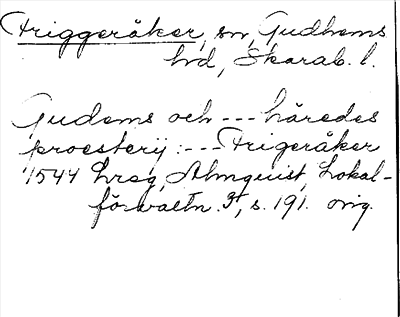 Friggeråker, sn, Gudhems
hd, Skarab. l.
Gudems och --- häredes
proesterij: --- Frigeråker
1544 Lrsg, Almquist, Lokal-
förvaltn. I, s. 191. orig.